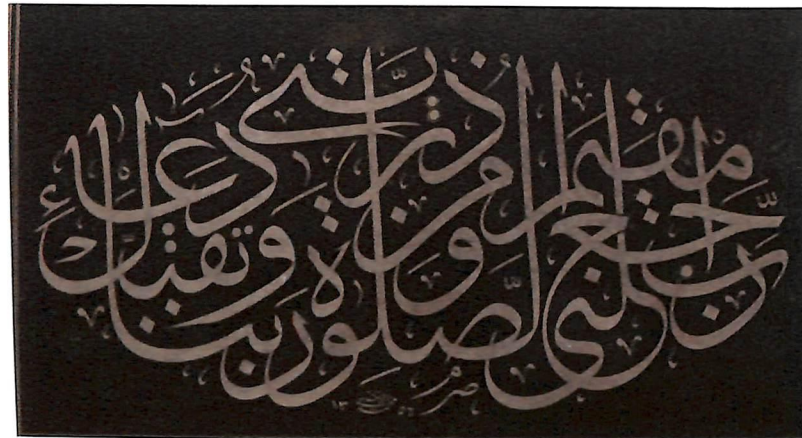 رَبِّ اجْعَلْنِي مُقِيمَ الصَّلٰوةِ وَمِنْ ذُرِّيَّتِي رَبَّنَا وَتَقَبَّلْ دُعَاءِ